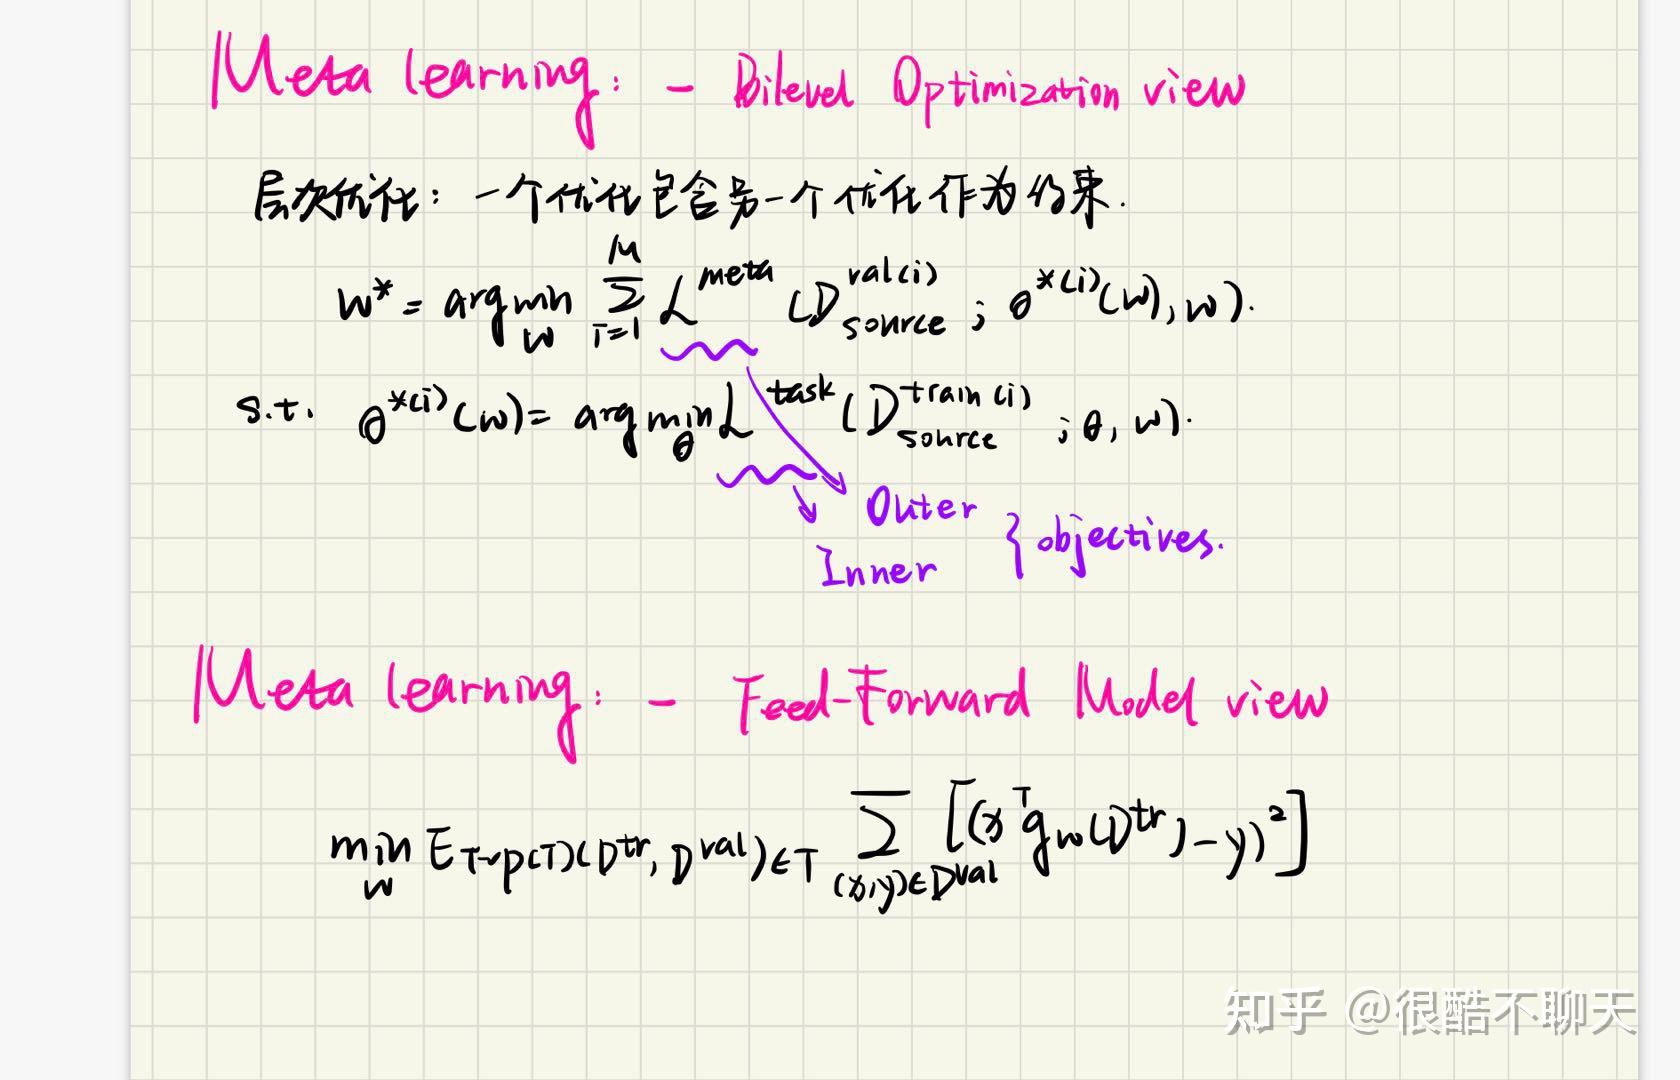 Meta learning: - Bilevel Optimization view
层次优化: 一个优化包含另一个优化作为约束.
w* = arg min_w Σ_{i=1}^{M} L^{meta} (D_{source}^{val(i)} ; θ^{*(i)}(w), w).
s.t. θ^{*(i)}(w) = arg min_θ L^{task} (D_{source}^{train(i)} ; θ, w).
Outer
Inner
} objectives.
Meta learning: - Feed-Forward Model view
min_w E_{T~p(T)(D^{tr}, D^{val})∈T} Σ_{(x,y)∈D^{val}} [(x^T g_w(D^{tr}) - y)^2]
知乎 @很酷不聊天